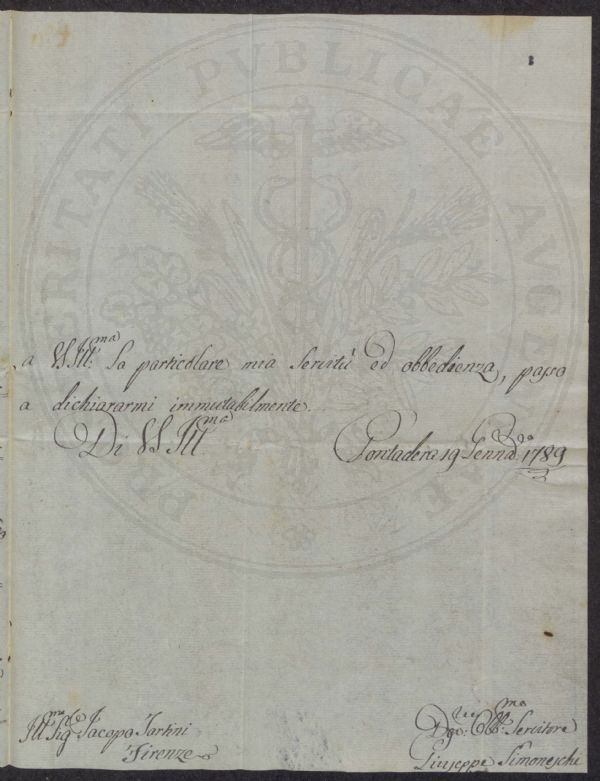 PROSPERITATI PUBLICAE AUGENDAE
a VS Ill:ma la particolare mia Servitù ed obbedienza, passo
a dichiararmi immutabilmente.
Di VS Ill:ma
Pontadera 19 Genn:o 1789
Ill:mo Sig:re Jacopo Tartini
Firenze
Obb:mo Servitore
Giuseppe Simoneschi